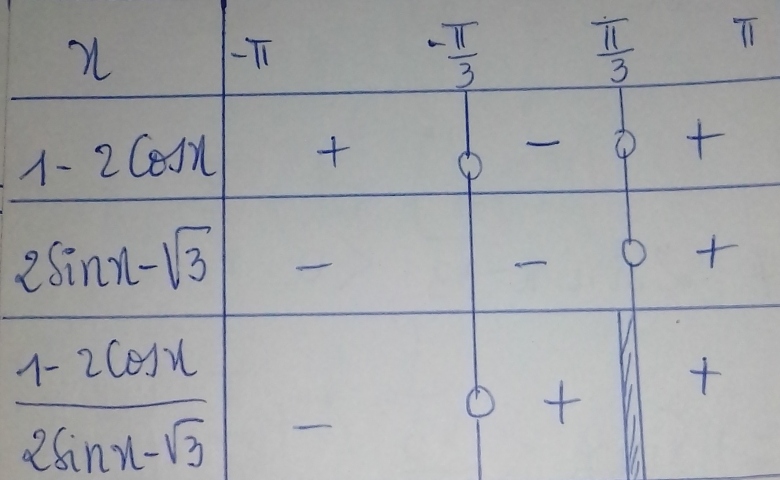 x -π -π/3 π/3 π
1 - 2Cosx + 0 - 0 +
2Sinx - √3 - - 0 +
1 - 2Cosx / 2Sinx - √3 - 0 + +